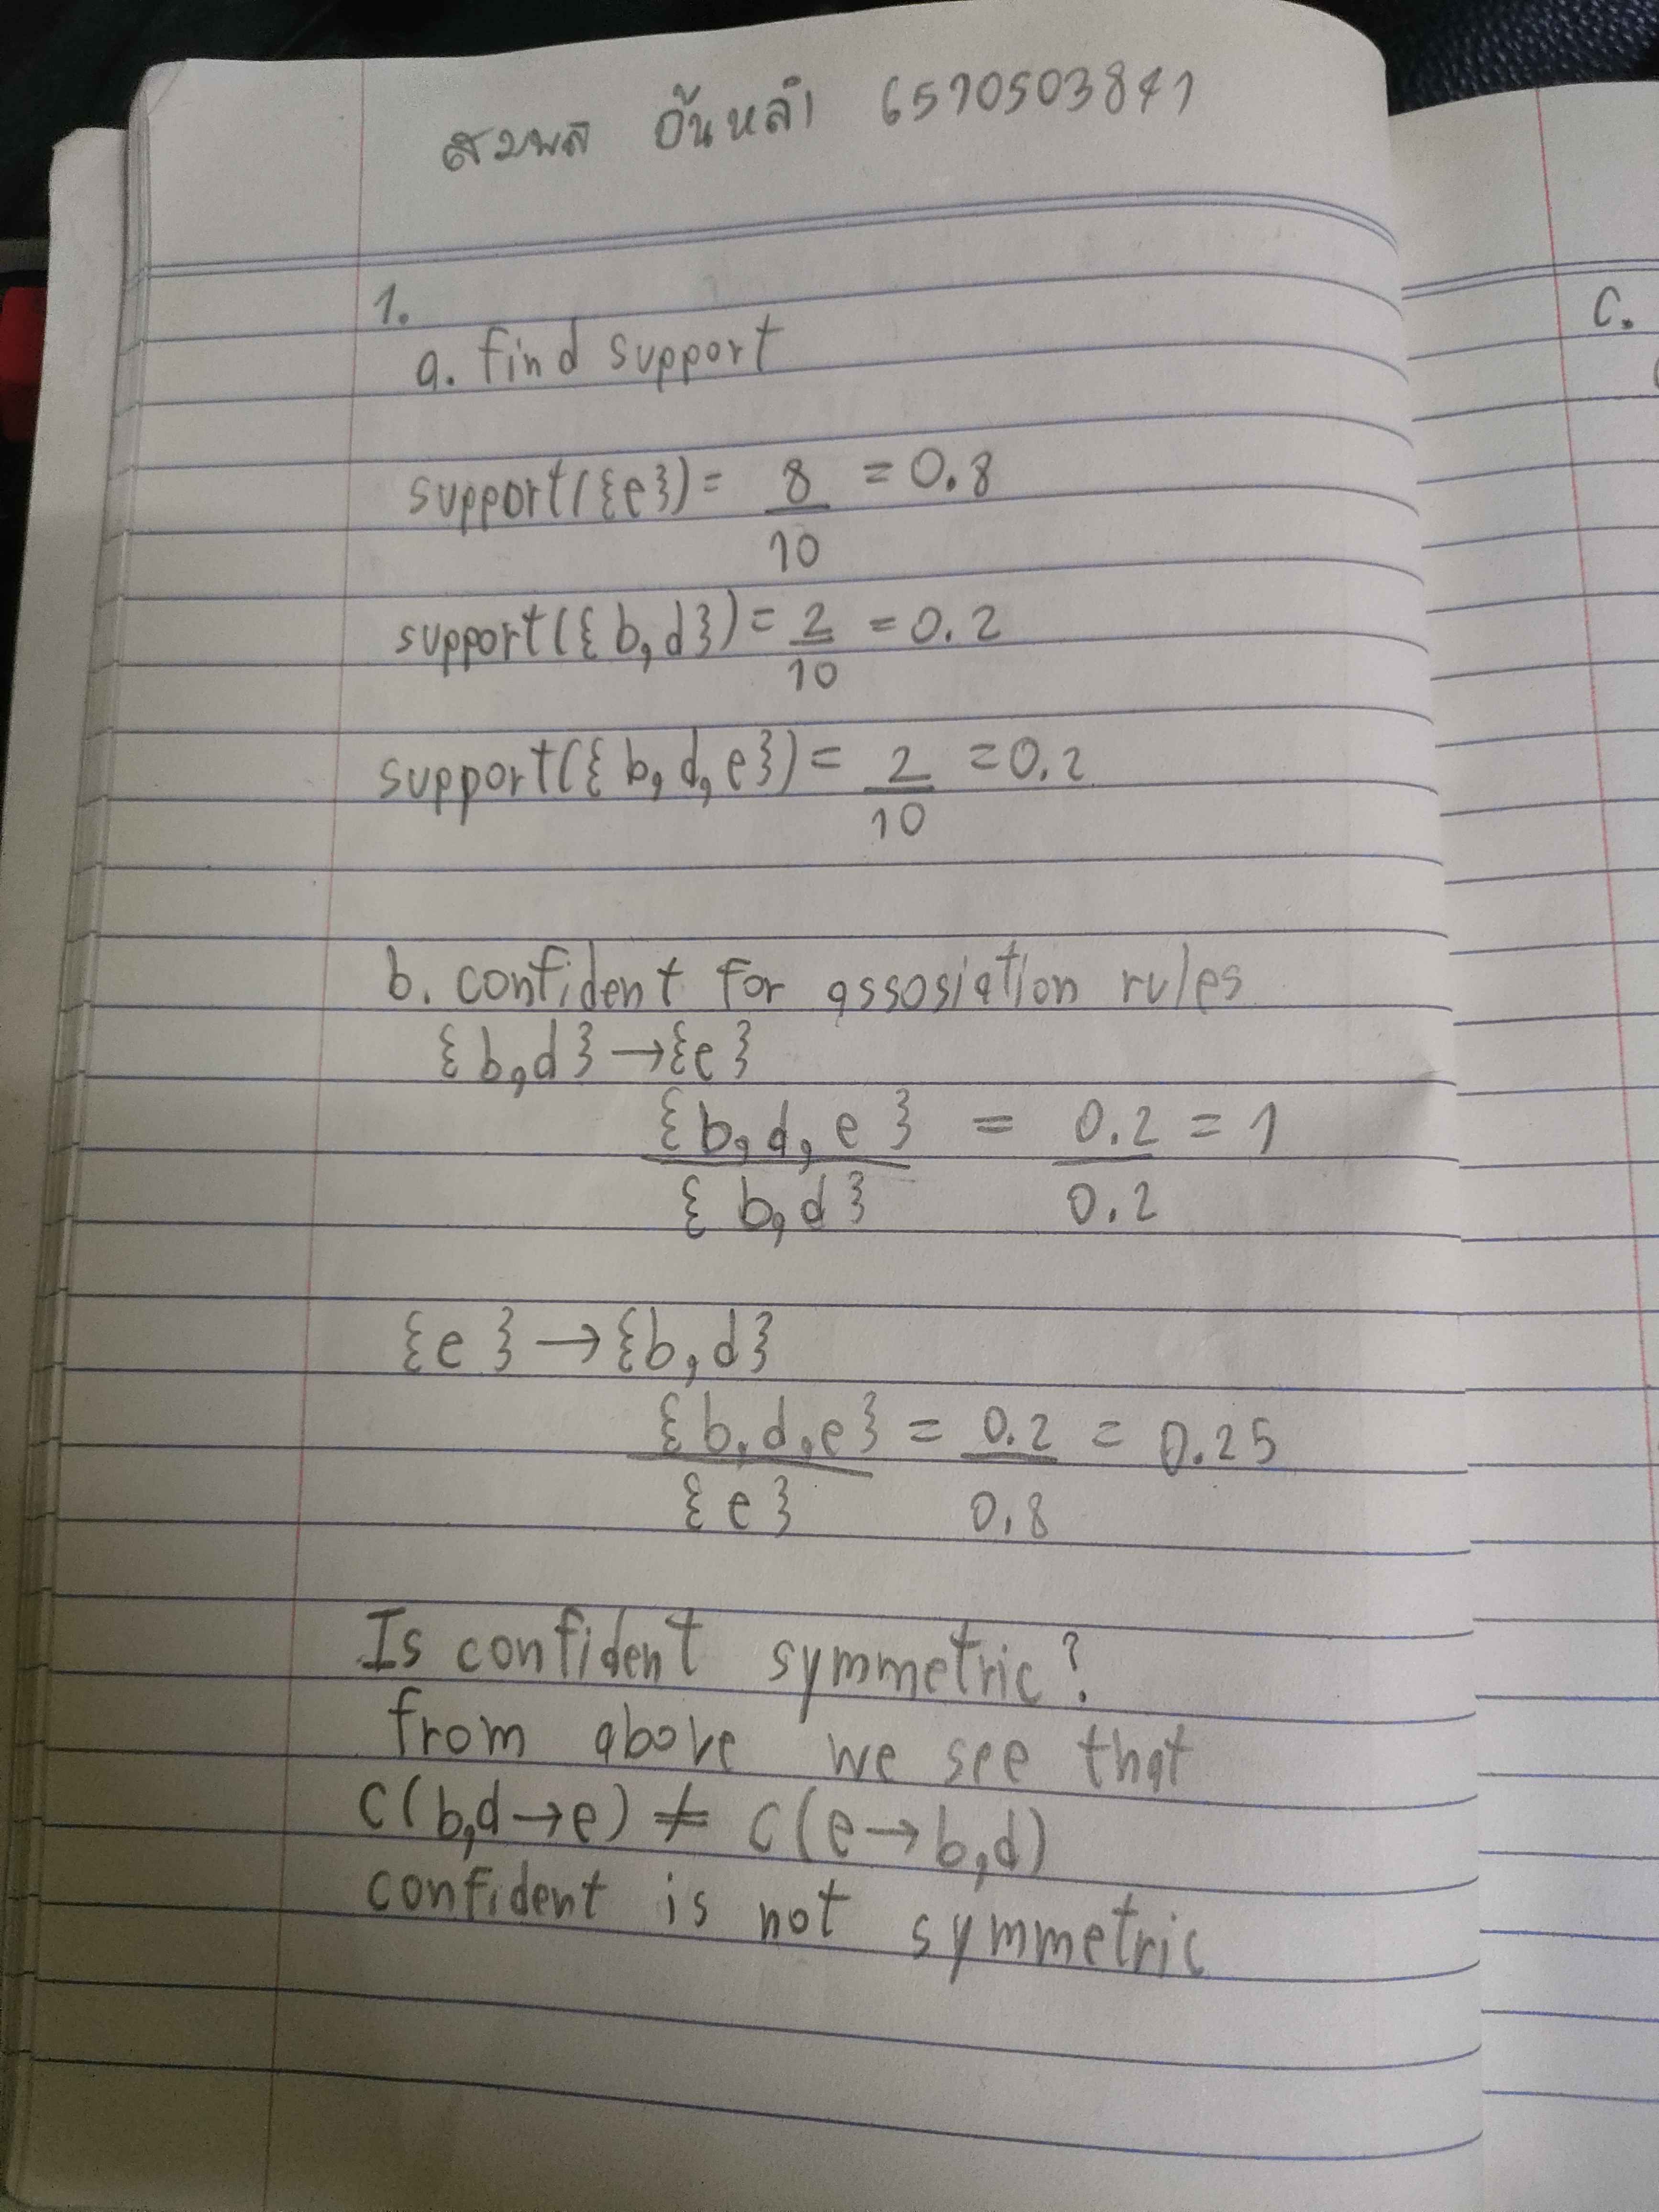 สมพล อ้นหลำ 6510503841
1.
a. find support
support({e}) = 8/10 = 0.8
support({b,d}) = 2/10 = 0.2
support({b,d,e}) = 2/10 = 0.2
b. confident for assosiation rules
{b,d} → {e}
{b,d,e}/{b,d} = 0.2/0.2 = 1
{e} → {b,d}
{b,d,e}/{e} = 0.2/0.8 = 0.25
Is confident symmetric?
from above we see that
c(b,d→e) ≠ c(e→b,d)
confident is not symmetric
C.